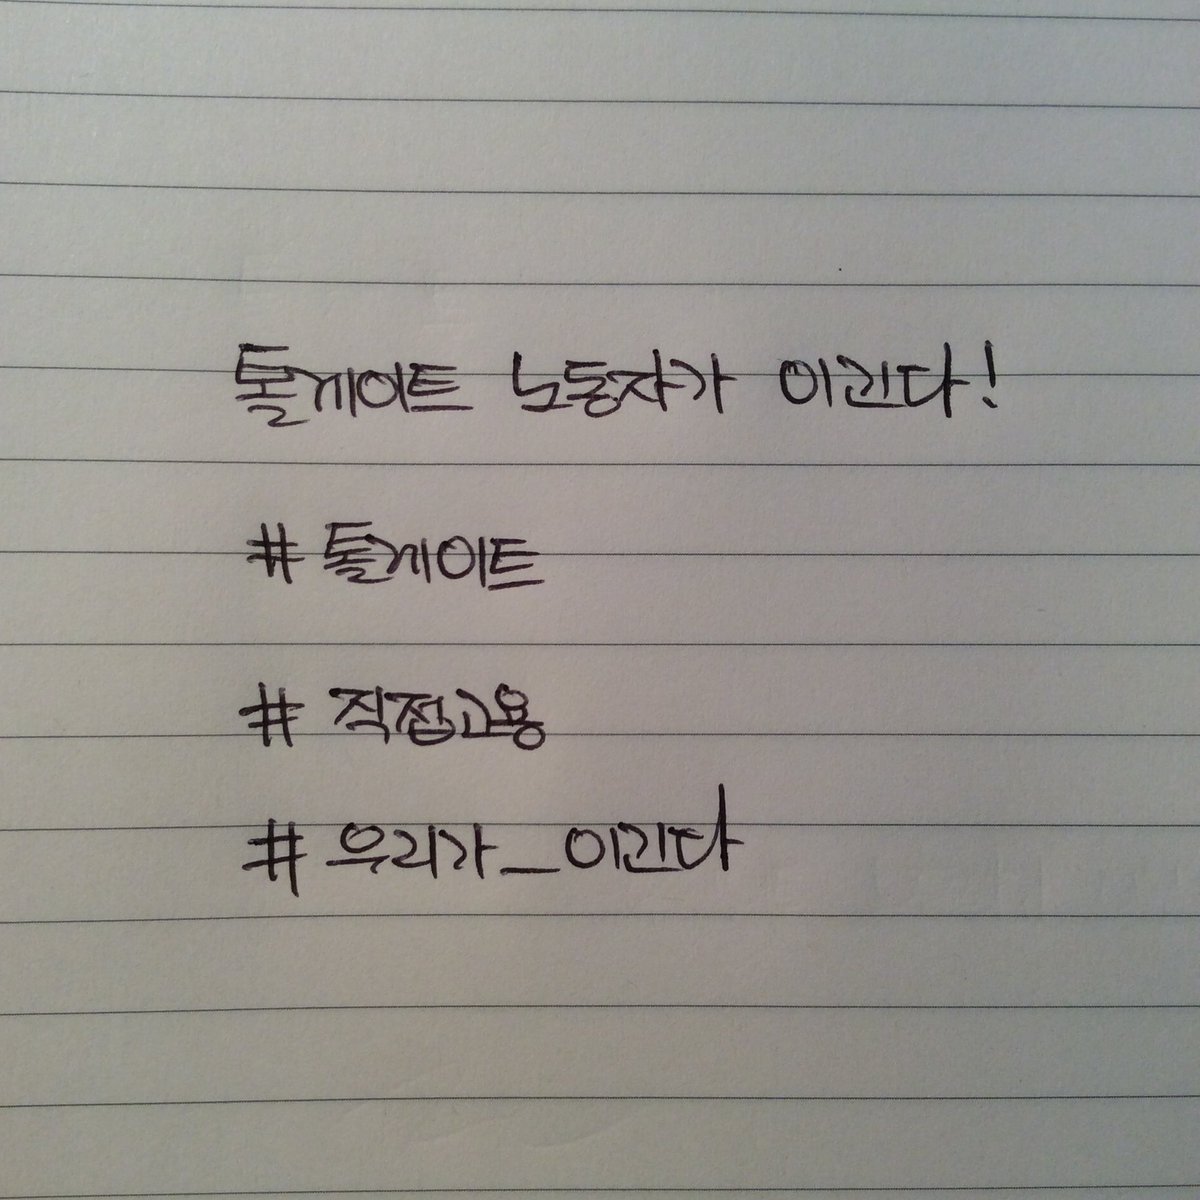 톨게이트 노동자가 이긴다!
# 톨게이트
# 직접고용
# 우리가_이긴다